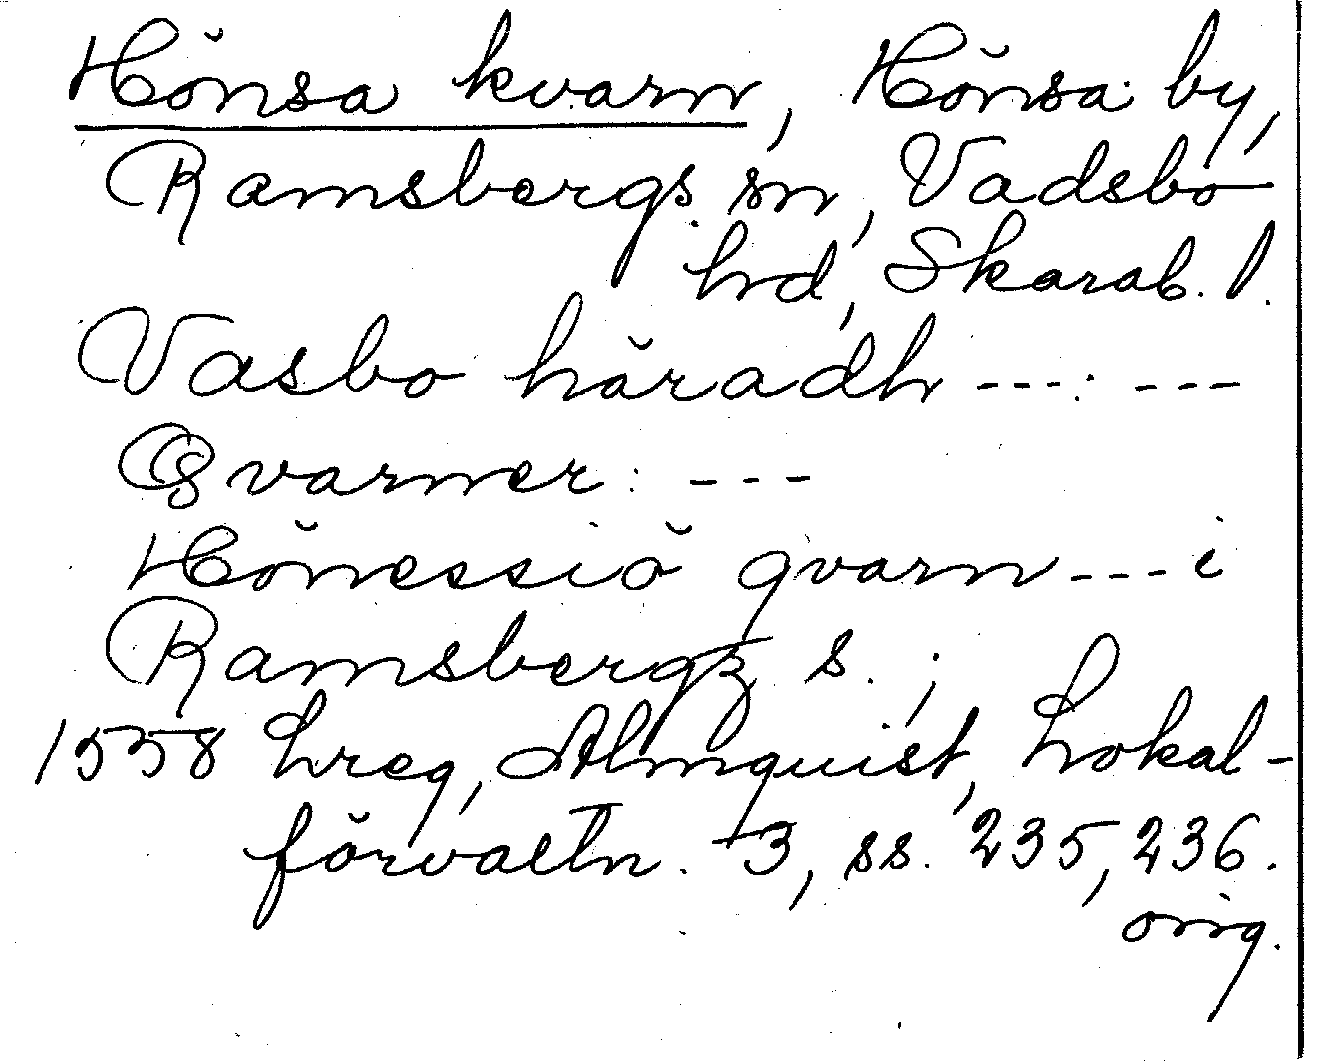 Hönsa kvarn, Hönsa by,
Ramsbergs sn, Vadsbo
hd, Skarab. l.
Vasbo häradh ---: ---
Qvarner: ---
Hönessiö qvarn --- i
Ramsbergz s.;
1558 hreg, Almquist, Lokal-
förvaltn. 3, ss. 235, 236.
orig.